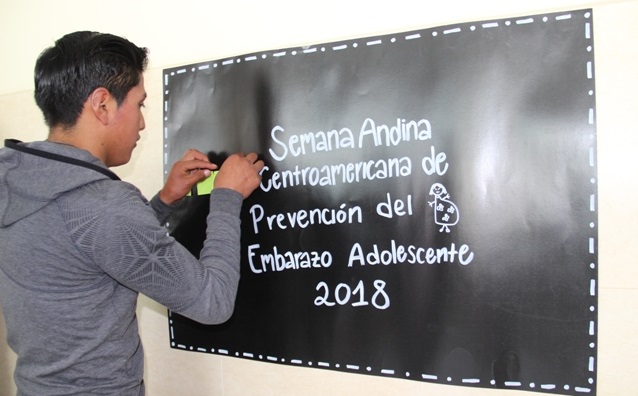 Semana Andina
Centroamericana de
Prevención del
Embarazo Adolescente
2018